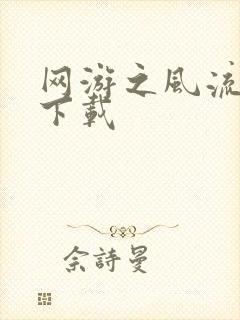 网游之风流
下载
佘詩曼